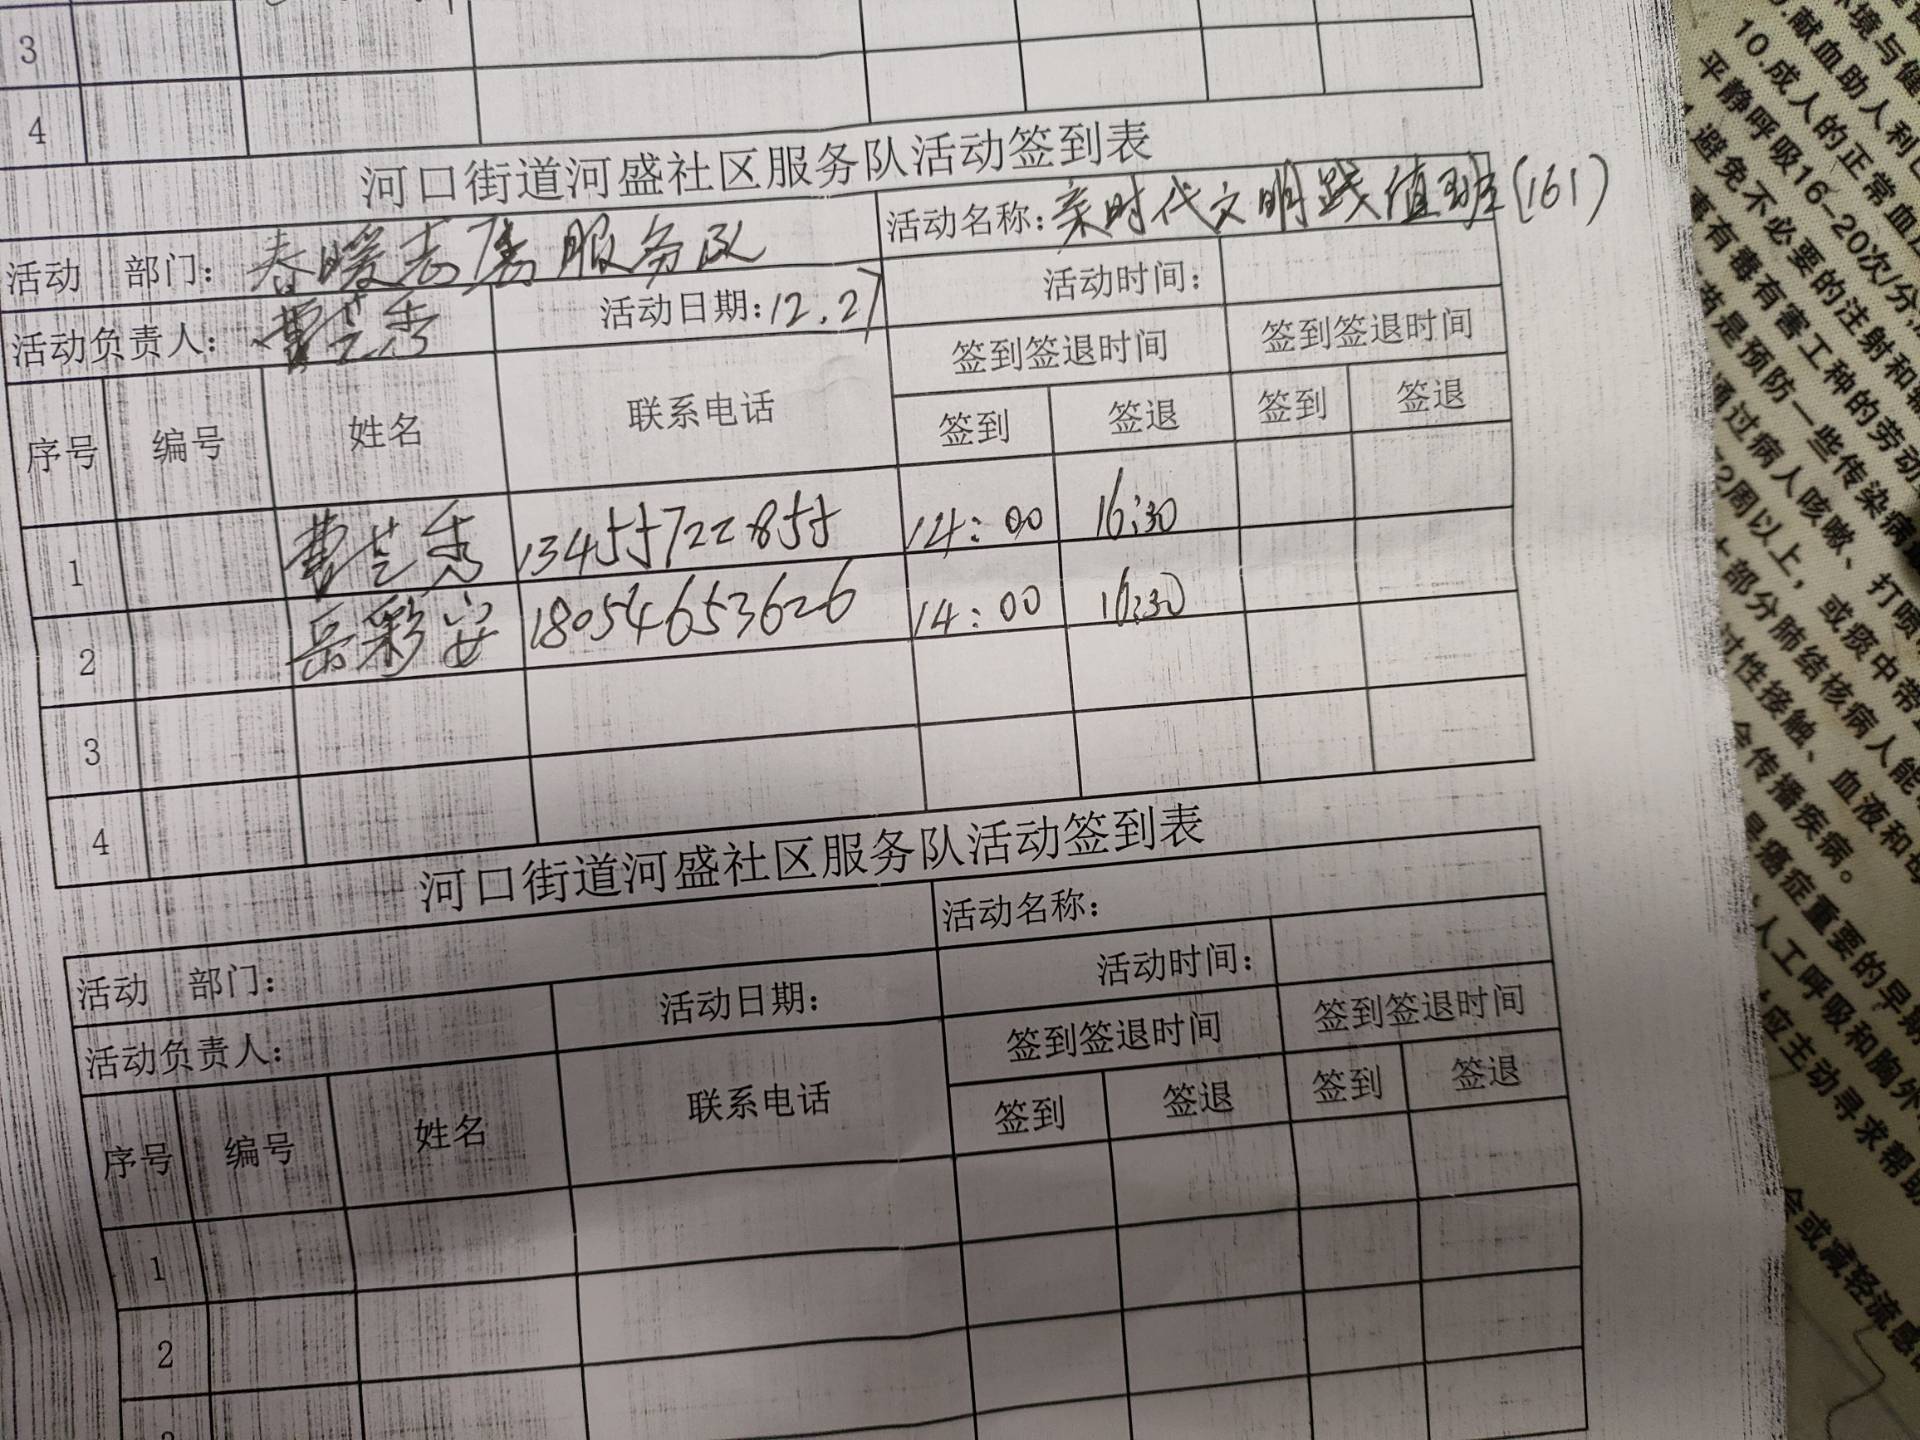 3
4
河口街道河盛社区服务队活动签到表
活动 部门：春暖志愿服务队 活动名称：亲时代文明践值班(161)
活动负责人：曹芝秀 活动日期：12.27 活动时间：
序号 编号 姓名 联系电话 签到签退时间 签到签退时间
签到 签退 签到 签退
1 曹芝秀 13455722855 14:00 16:30
2 岳彩安 18054653626 14:00 16:30
3
4
河口街道河盛社区服务队活动签到表
活动 部门： 活动名称：
活动负责人： 活动日期： 活动时间：
序号 编号 姓名 联系电话 签到签退时间 签到签退时间
签到 签退 签到 签退
1
2
环境与健
献血助人利己
10.成人的正常血压
平静呼吸16-20次/分
避免不必要的注射和输
事有毒有害工种的劳动
苗是预防一些传染病最
通过病人咳嗽、打喷
2周以上，或痰中带
大部分肺结核病人能
性接触、血液和母
会传播疾病。
是癌症重要的早期
人工呼吸和胸外
应主动寻求帮助
会或减轻流感